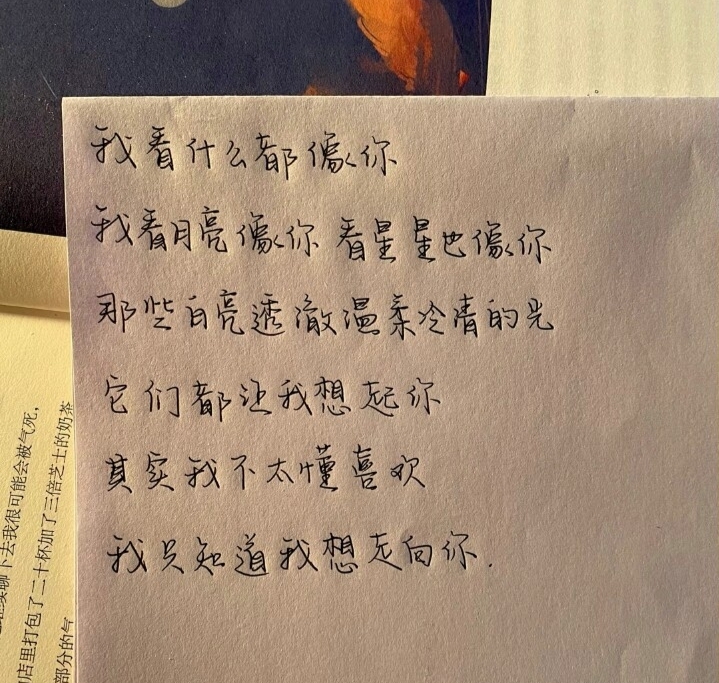 我看什么都像你
我看月亮像你 看星星也像你
那些白亮透澈温柔冷清的光
它们都让我想起你
其实我不太懂喜欢
我只知道我想走向你.
聊下去我很可能会被气死，
店里打包了二十杯加了三倍芝士的奶茶
部分的气